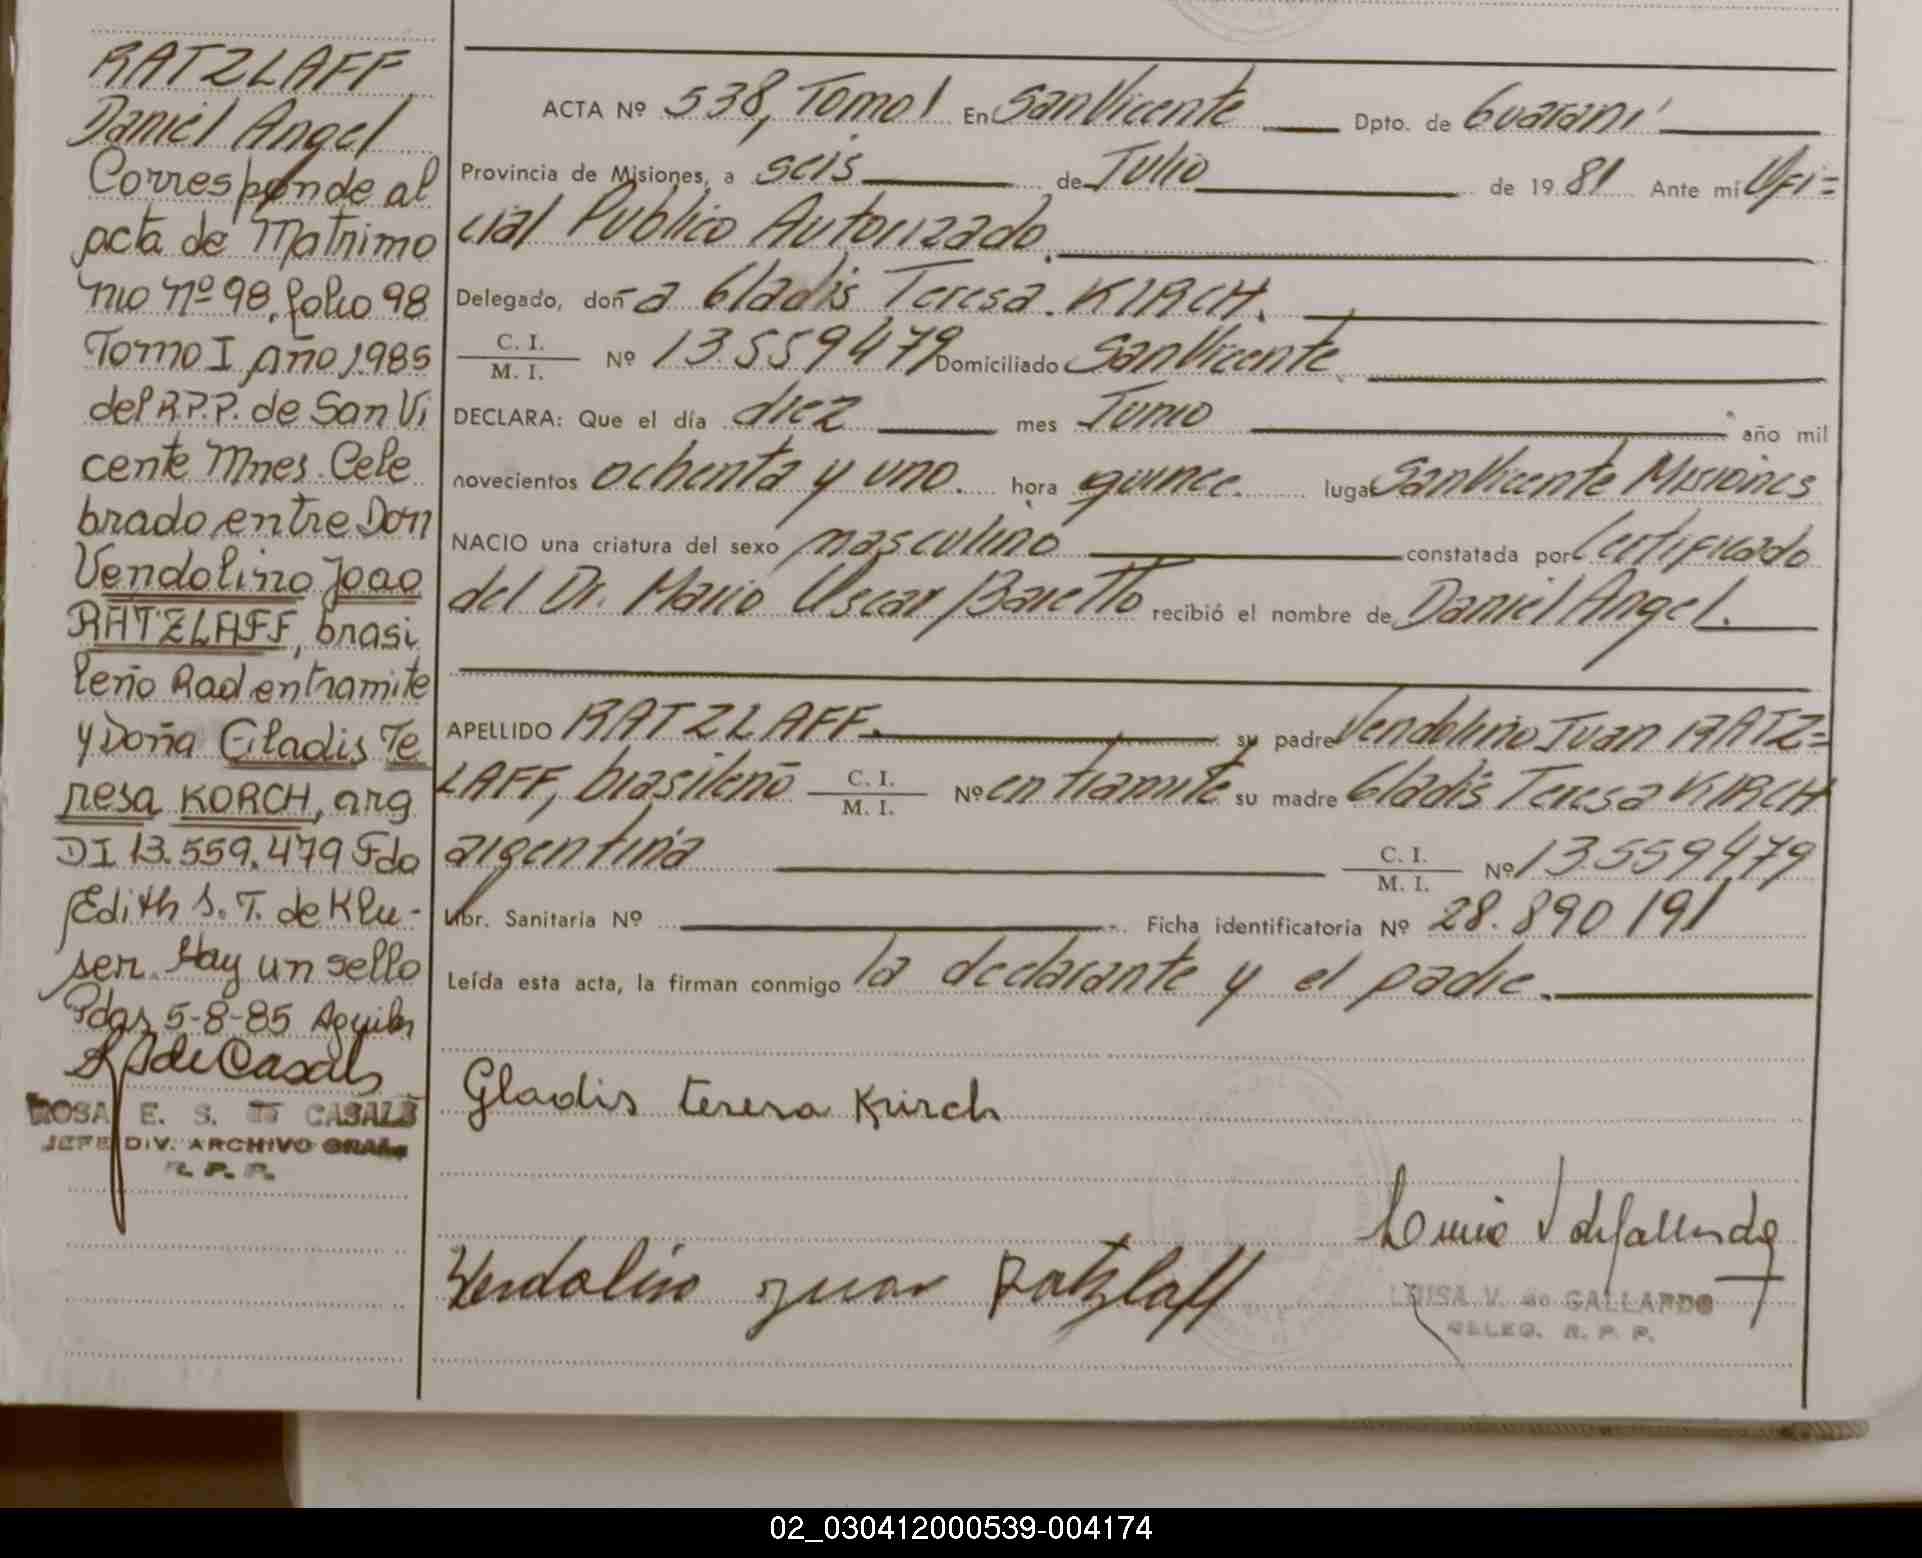 RATZLAFF
Daniel Angel
Corresponde al
acta de Matrimo
nio nº 98, folio 98
Tomo I año 1985
del R.P.P. de San Vi
cente Mnes. Cele
brado entre Don
Vendolino Joao
RATZLAFF, brasi
leño Rad en tramite
y Doña Gladis Te
resa KORCH, arg
DI 13.559.479 Fdo
Edith S. T. de Klu-
ser. Hay un sello
Pdas 5-8-85
de Casals
ROSA E. S. de CASALS
JEFE DIV. ARCHIVO GRAL.
R. P. P.
ACTA Nº 538, Tomo I En San Vicente Dpto. de Guaraní
Provincia de Misiones, a seis de Julio de 1981 Ante mí Ofi=
cial Publico Autorizado.
Delegado, doña Gladis Teresa KIRCH.
C. I.
M. I. Nº 13.559479 Domiciliado San Vicente
DECLARA: Que el día diez mes Junio año mil
novecientos ochenta y uno. hora quince. lugar San Vicente Misiones
NACIO una criatura del sexo masculino constatada por Certificado
del Dr. Mario Oscar Baretto recibió el nombre de Daniel Angel.
APELLIDO RATZLAFF. su padre Vendolino Juan RATZ=
LAFF, brasileño C. I. M. I. Nº en tramite su madre Gladis Teresa KIRCH
argentina C. I. M. I. Nº 13.559479
Libr. Sanitaria Nº Ficha identificatoria Nº 28.890 191
Leída esta acta, la firman conmigo la declarante y el padre.
Gladis teresa Kirch
V de Gallardo
Vendolino Juan Ratzlaff
LUISA V. de GALLARDO
DELEG. R. P. P.
02_030412000539-004174